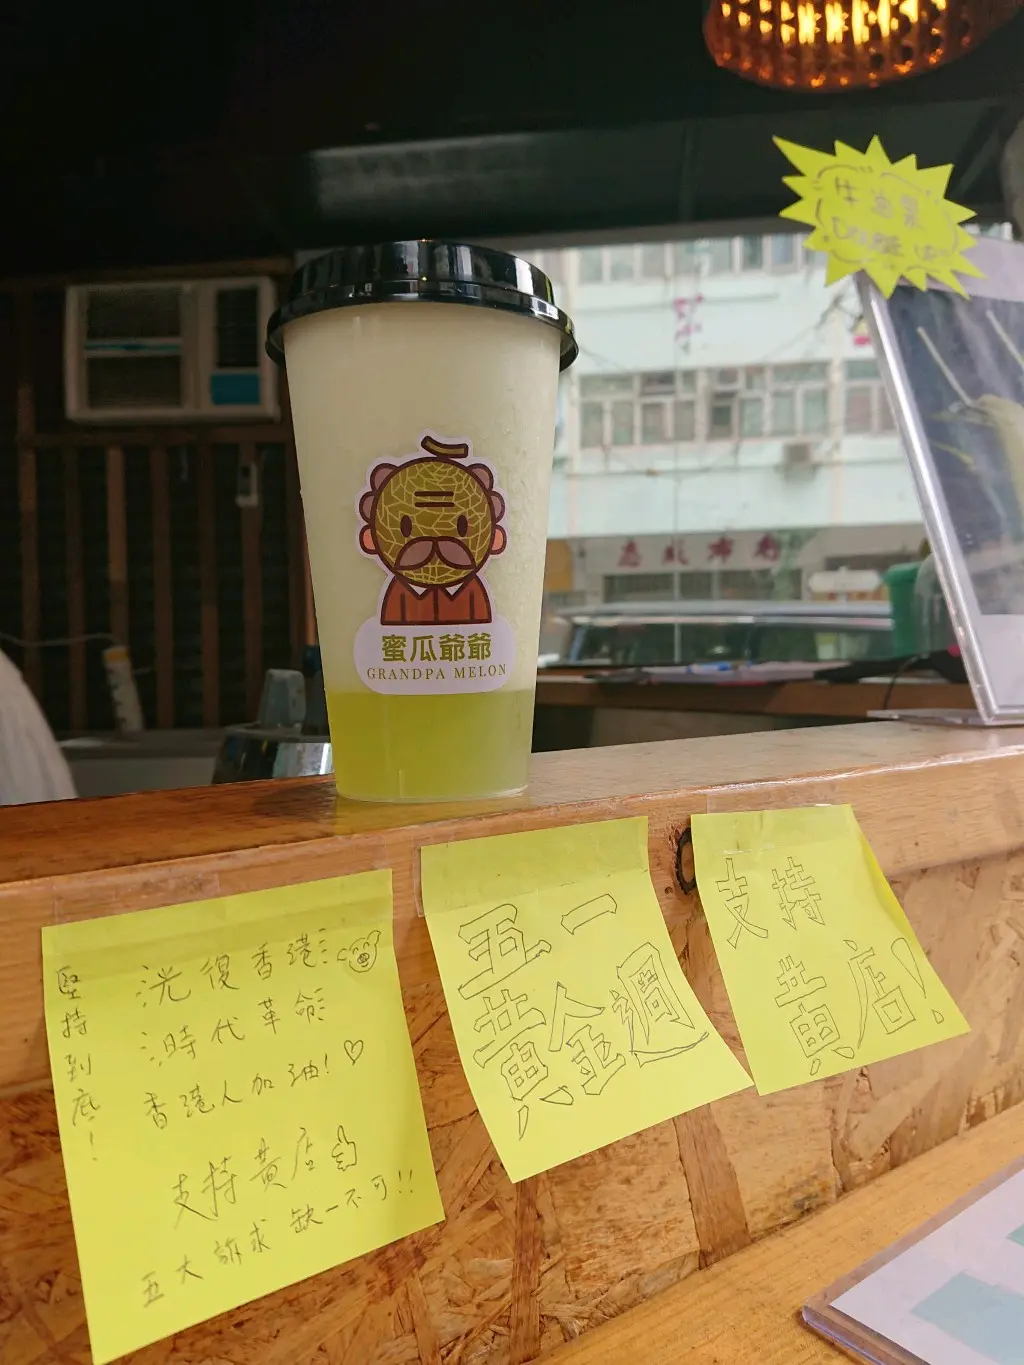 牛油果
蜜瓜爺爺
GRANDPA MELON
堅持到底!
光復香港
時代革命
香港人加油!♡
支持黃店
五大訴求 缺一不可!!
五一
黃金週
支持
黃店!